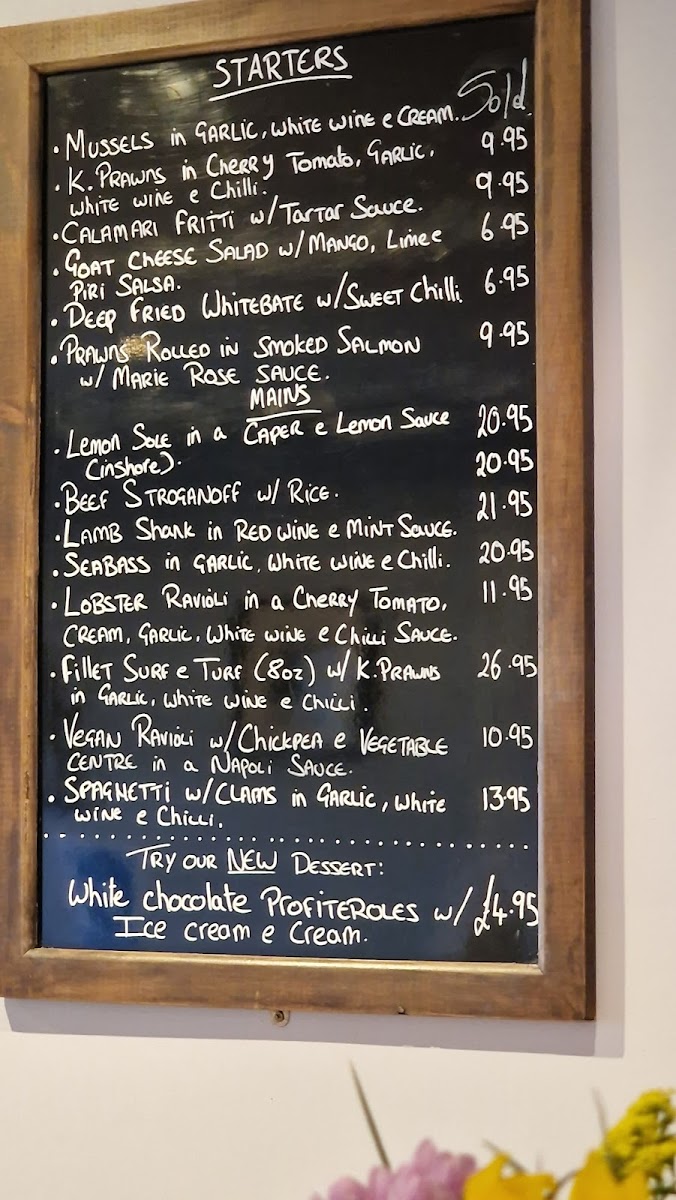 STARTERS
• MUSSELS in GARLIC, WHITE WINE e CREAM. Sold
• K. PRAWNS in CHERRY TOMATO, GARLIC, 9.95
WHITE WINE e Chilli.
• CALAMARI FRITTI w/ TARTAR SAUCE. 9.95
• GOAT CHEESE SALAD w/ MANGO, LIME e 6.95
PIRI SALSA.
• DEEP FRIED WHITEBATE w/ SWEET Chilli 6.95
• PRAWNS ROLLED IN SMOKED SALMON 9.95
w/ MARIE ROSE SAUCE.
MAINS
• Lemon SOLE in a CAPER e Lemon SAUCE 20.95
(inshore).
• BEEF STROGANOFF w/ RICE. 20.95
• LAMB SHANK in RED WINE e MINT SAUCE. 21.95
• SEABASS in GARLIC, WHITE WINE e Chilli. 20.95
• LOBSTER RAVIOLI in a CHERRY TOMATO, 11.95
CREAM, GARLIC, WHITE WINE e CHILLI SAUCE.
• FILLET SURF e TURF (8oz) w/ K. PRAWNS 26.95
in GARLIC, WHITE WINE e CHILLI.
• VEGAN RAVIOLI w/ CHICKPEA e VEGETABLE 10.95
CENTRE in a NAPOLI SAUCE.
• SPAGHETTI w/ CLAMS in GARLIC, WHITE 13.95
WINE e CHILLI.
TRY OUR NEW DESSERT:
White chocolate PROFITEROLES w/ £4.95
Ice cream e Cream.